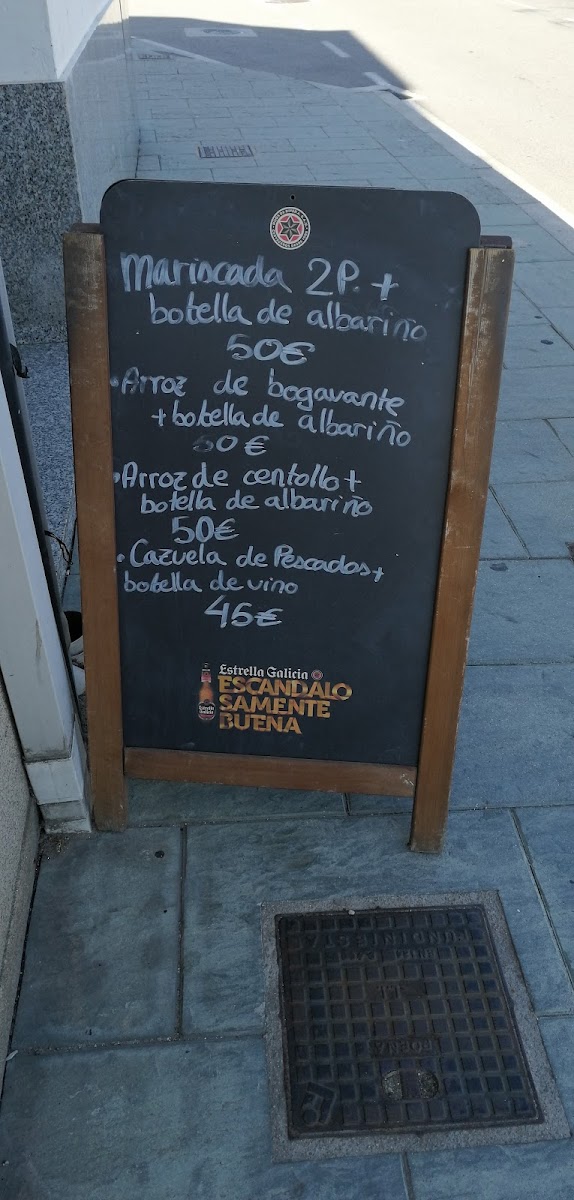 Mariscada 2P. +
botella de albariño
50€
• Arroz de bogavante
+ botella de albariño
50€
• Arroz de centollo +
botella de albariño
50€
• Cazuela de Pescados +
botella de vino
45€
Estrella Galicia
ESCANDALO
SAMENTE
BUENA